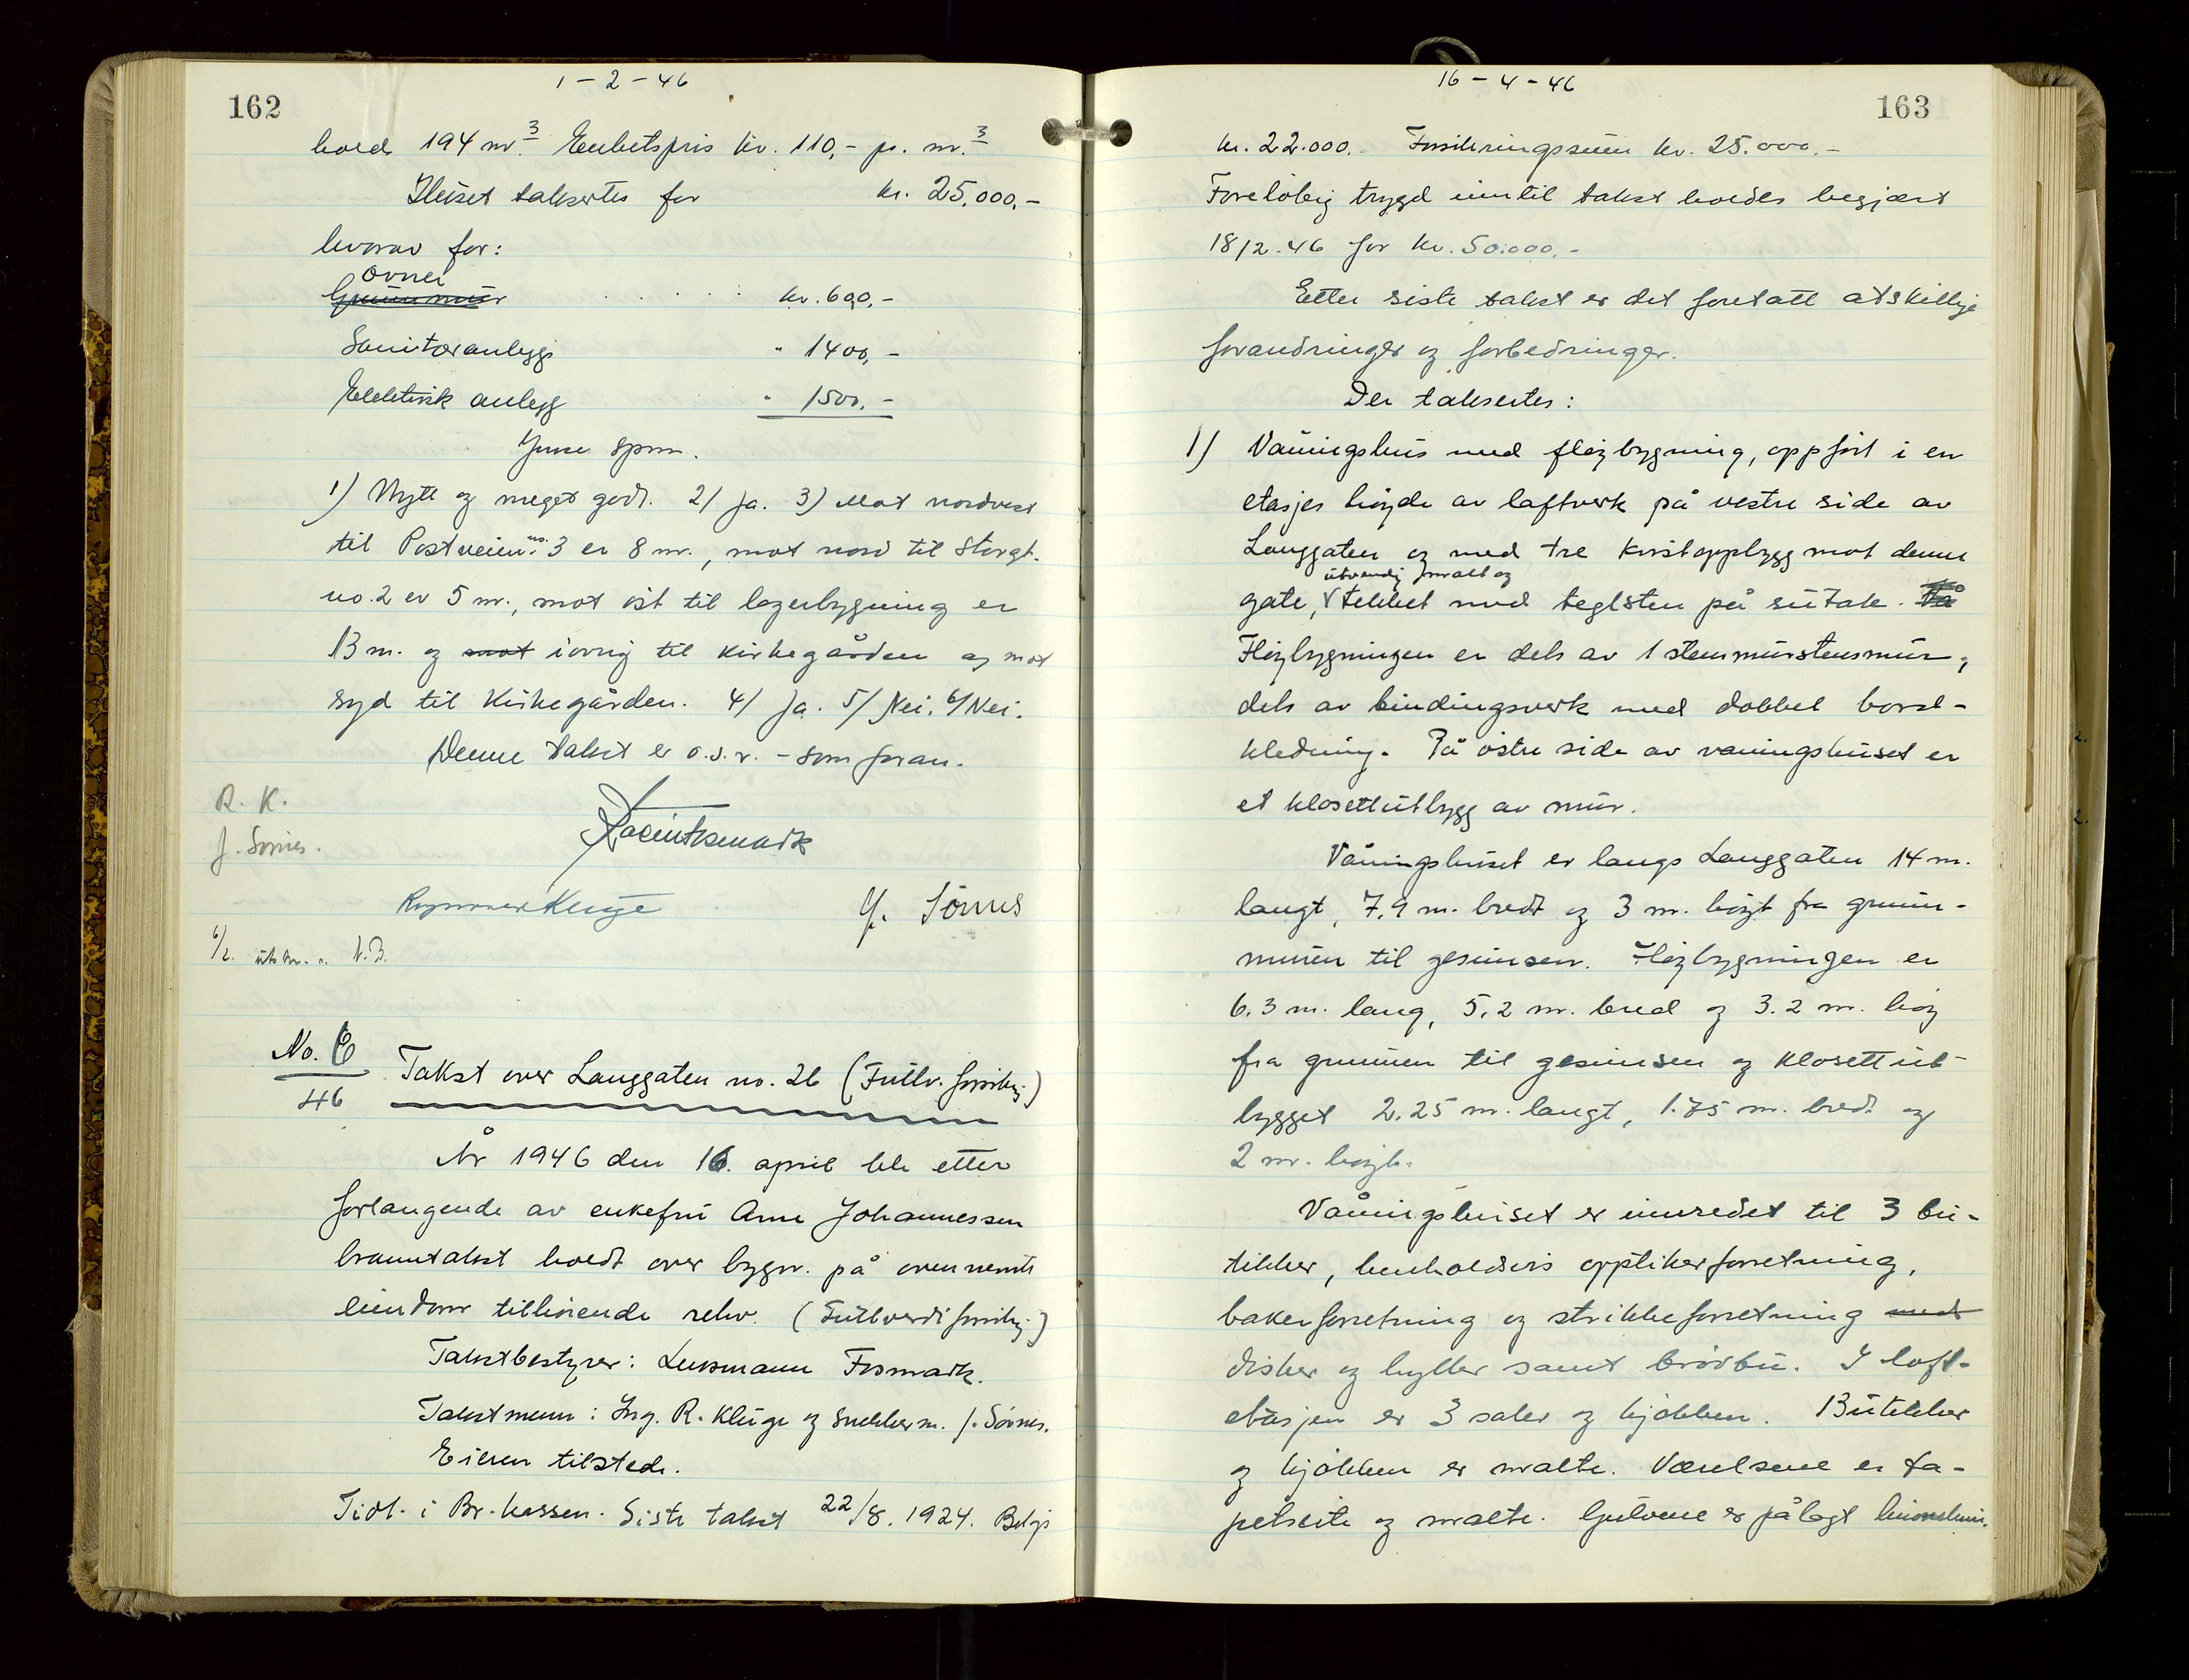 162
1 - 2 - 46
hold 194 m.3 Enhetspris kr. 110,- pr. m.3
Huset takseres for kr. 25.000.-
hvorav for:
Ovner
Grunnmur . . . . . kr. 600,-
Sanitæranlegg " 1400,-
Elektrisk anlegg " 1500.-
Jnne spm.
1) Nytt og meget godt. 2/ Ja. 3) Mot nordvest
til Postveien no. 3 er 8 m., mot nord til Storgt.
no. 2 er 5 m., mot öst til lagerbygning er
13 m. og mot iövrig til kirkegården og mot
syd til Kirkegården. 4/ Ja. 5/ Nei. 6/ Nei.
Denne takst er o.s.v. - som foran.
R. K.
J. Sörnes.
Ragnvald Kluge
J. Sörnes
6/2. utskr. N.B.
No. 6
46
Takst over Langgaten no. 26 (Fullv. forsikr.)
År 1946 den 16. april ble etter
forlangende av enkefru Anne Johannessen
branntakst holdt over bygn. på ovennevnte
eiendom tilhörende rekv. (Fullverdiforsikr.)
Takstbestyrer: Lensmann Fosmark.
Takstmenn: Ing. R. Kluge og snekkerm. J. Sörnes.
Eieren tilstede.
Tidl. i Br. kassen. Siste takst 22/8. 1924. Belöp
16 - 4 - 46
163
kr. 22.000.- Forsikringssum kr. 25.000.-
Forelöbig trygd inntil takst holdes begjært
18/2.46 for kr. 50.000.-
Etter siste takst er det foretatt atskillige
forandringer og forbedringer.
Der takseres:
1) Våningshus med flöybygning, oppfört i en
etasjes höyde av laftverk på vestre side av
Langgaten og med tre kvistoppbygg mot denne
utvendig malt og
gate, tekket med teglsten på sutak. På
Flöybygningen er dels av 1 stens murstensmur,
dels av bindingsverk med dobbel bord-
kledning. På östre side av våningshuset er
et klosettutbygg av mur.
Våningshuset er langs Langgaten 14 m.
langt, 7.9 m. bredt og 3 m. höyt fra grunn-
muren til gesimsen. Flöybygningen er
6.3 m. lang, 5.2 m. bred og 3.2 m. höy
fra grunnen til gesimsen og klosettut-
bygget 2.25 m. langt, 1.75 m. bredt og
2 m. höyt.
Våningshuset er innredet til 3 bu-
tikker, henholdsvis optikerforretning,
bakerforretning og strikkeforretning med
disker og hyller samt brödbu. I loft-
etasjen er 3 saler og kjökken. Butikker
og kjökken er malte. Værelsene er ta-
petserte og malte. Gulvene er pålagt linoleum.